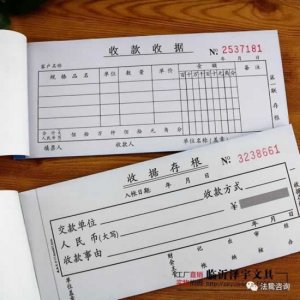 收款收据 №: 2537181
客户名称 年 月 日
规格品名 单位 数量 单价 金额 备注
百 十 万 千 百 十 元 角 分
第一联 存根
合计人民币 佰 拾 万 仟 佰 拾 元 角 分
填票人 收款人 单位名称(盖章)
收据存根 №: 3238661
入帐日期: 年 月 日
交款单位 收款方式
人民币(大写) ¥
收款事由
年 月 日
厂家直销 临沂铎宇文具
法鹫咨询